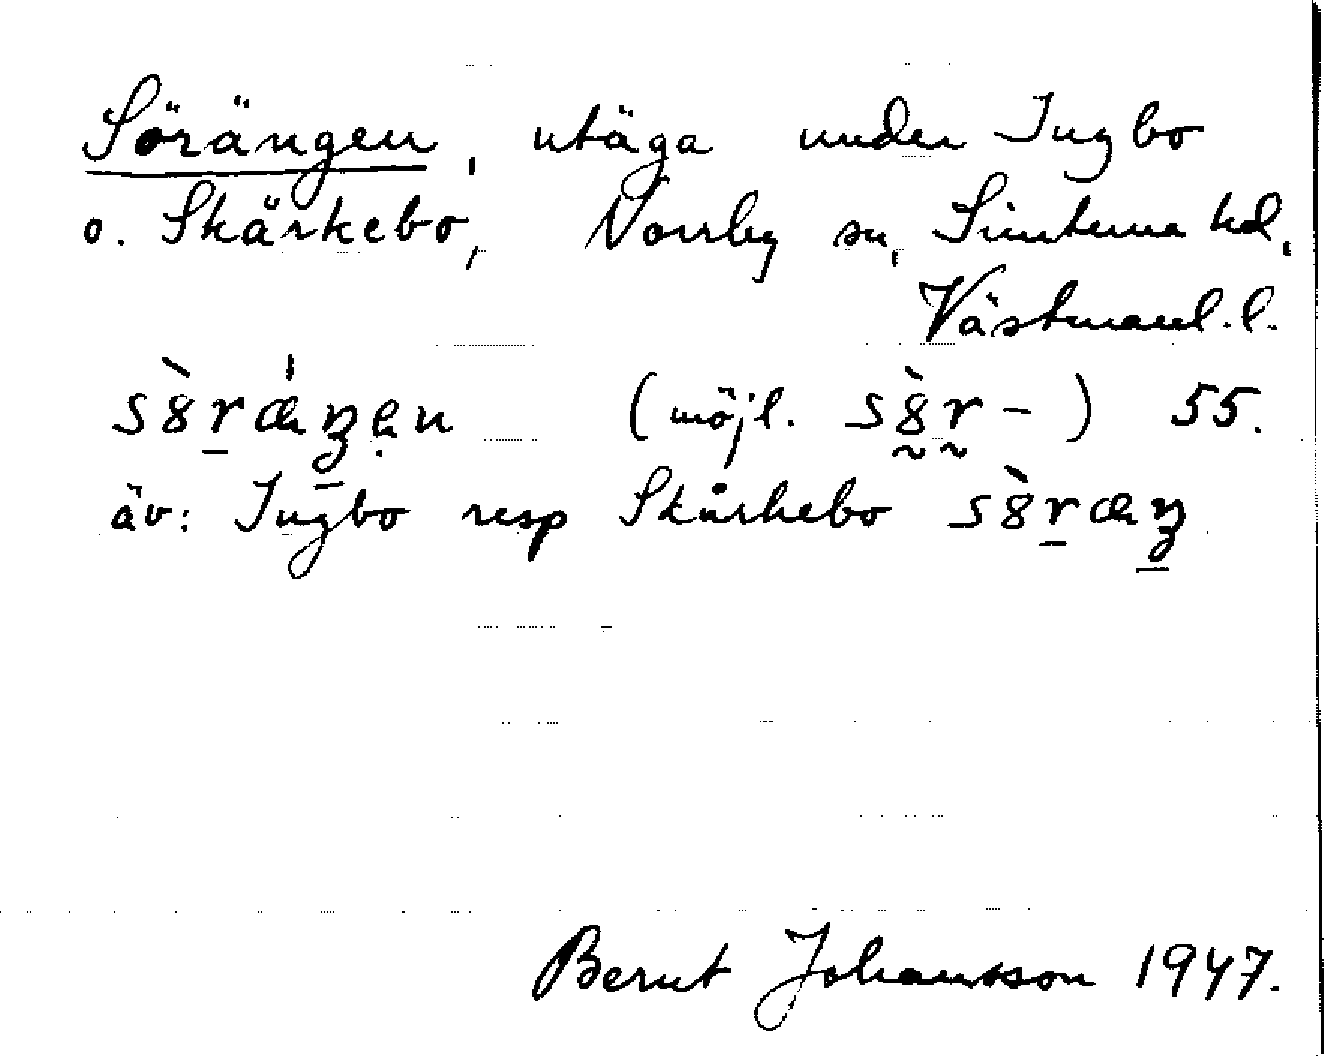 Sörängen, utäga under Ingbo
o. Skärkebo, Norrby sn, Simtuna hd,
Västmanl. l.
sò̈räŋen (möjl. sö̀r-) 55.
äv: Ingbo resp Skärkebo sö̀räŋ
Bernt Johansson 1947.